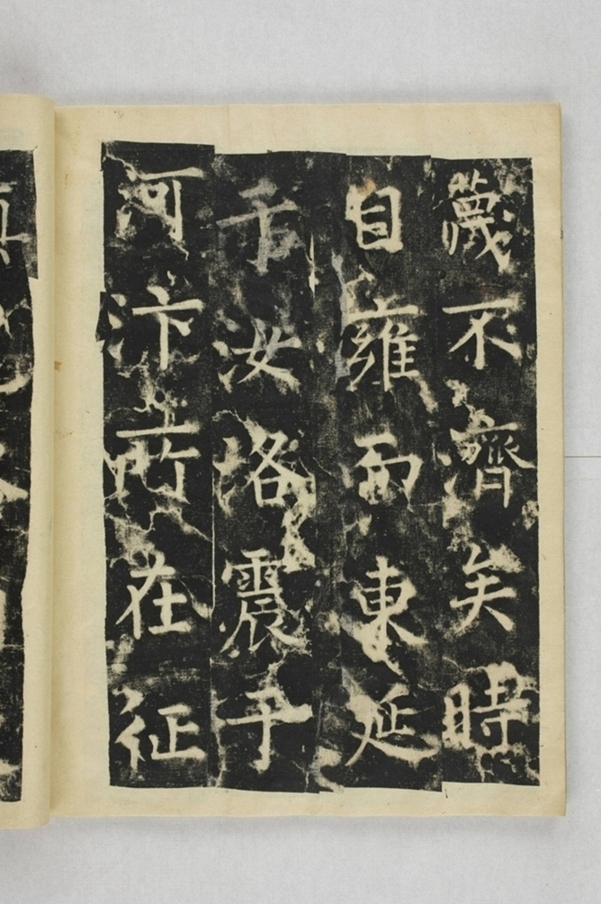 蔑不濟矣時
自雍而東延
于汝洛震乎
河汴所在征